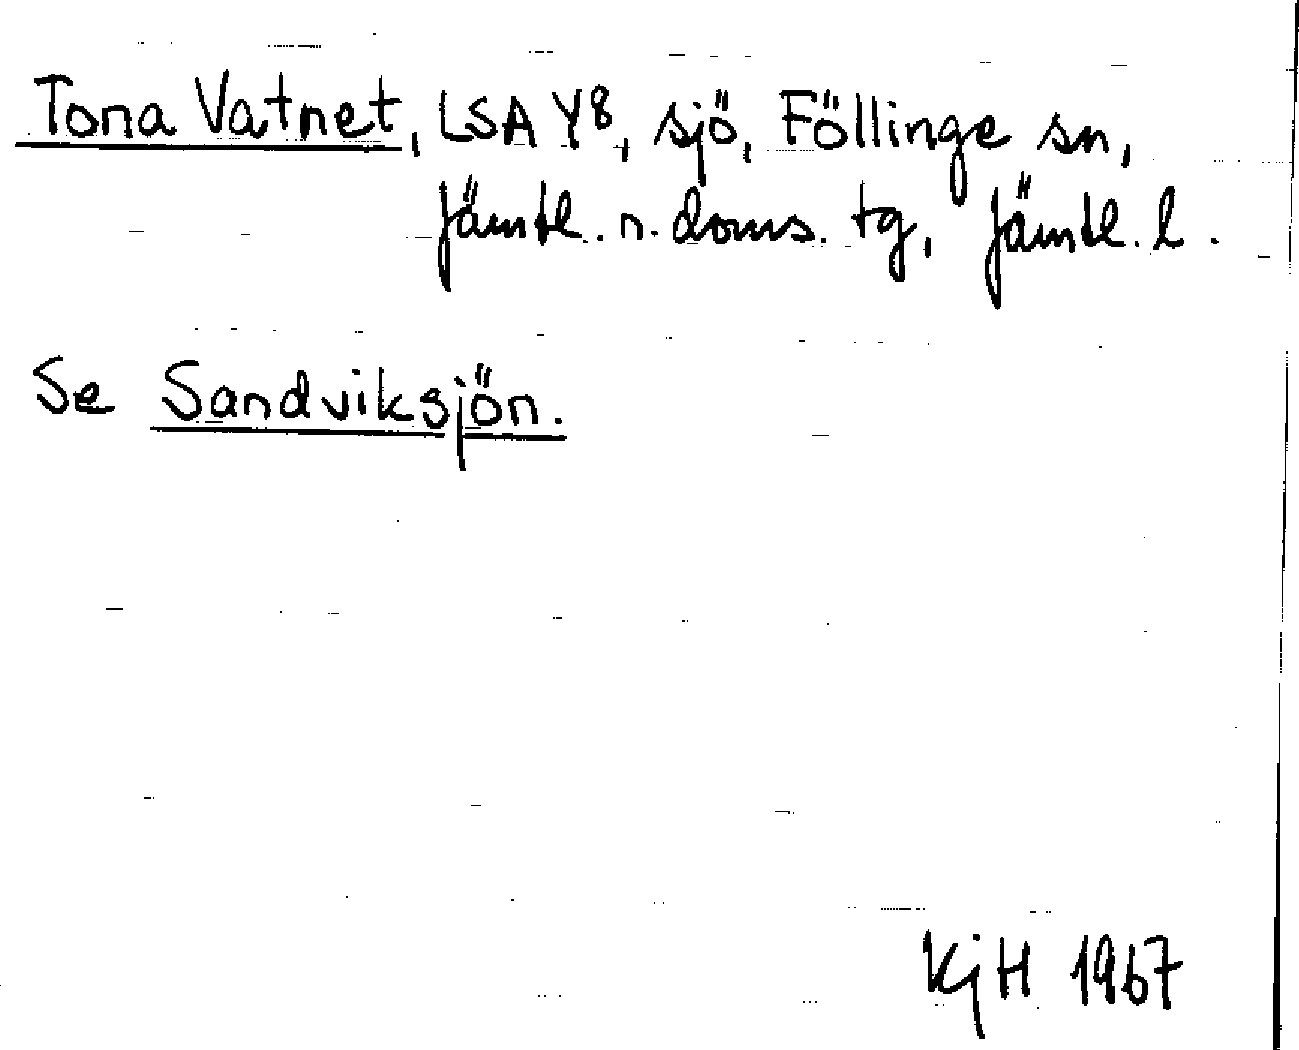 Tona Vatnet, LSA Y8, sjö, Föllinge sn,
Jämtl. n. doms. tg, Jämtl. l.
Se Sandviksjön.
KjH 1967